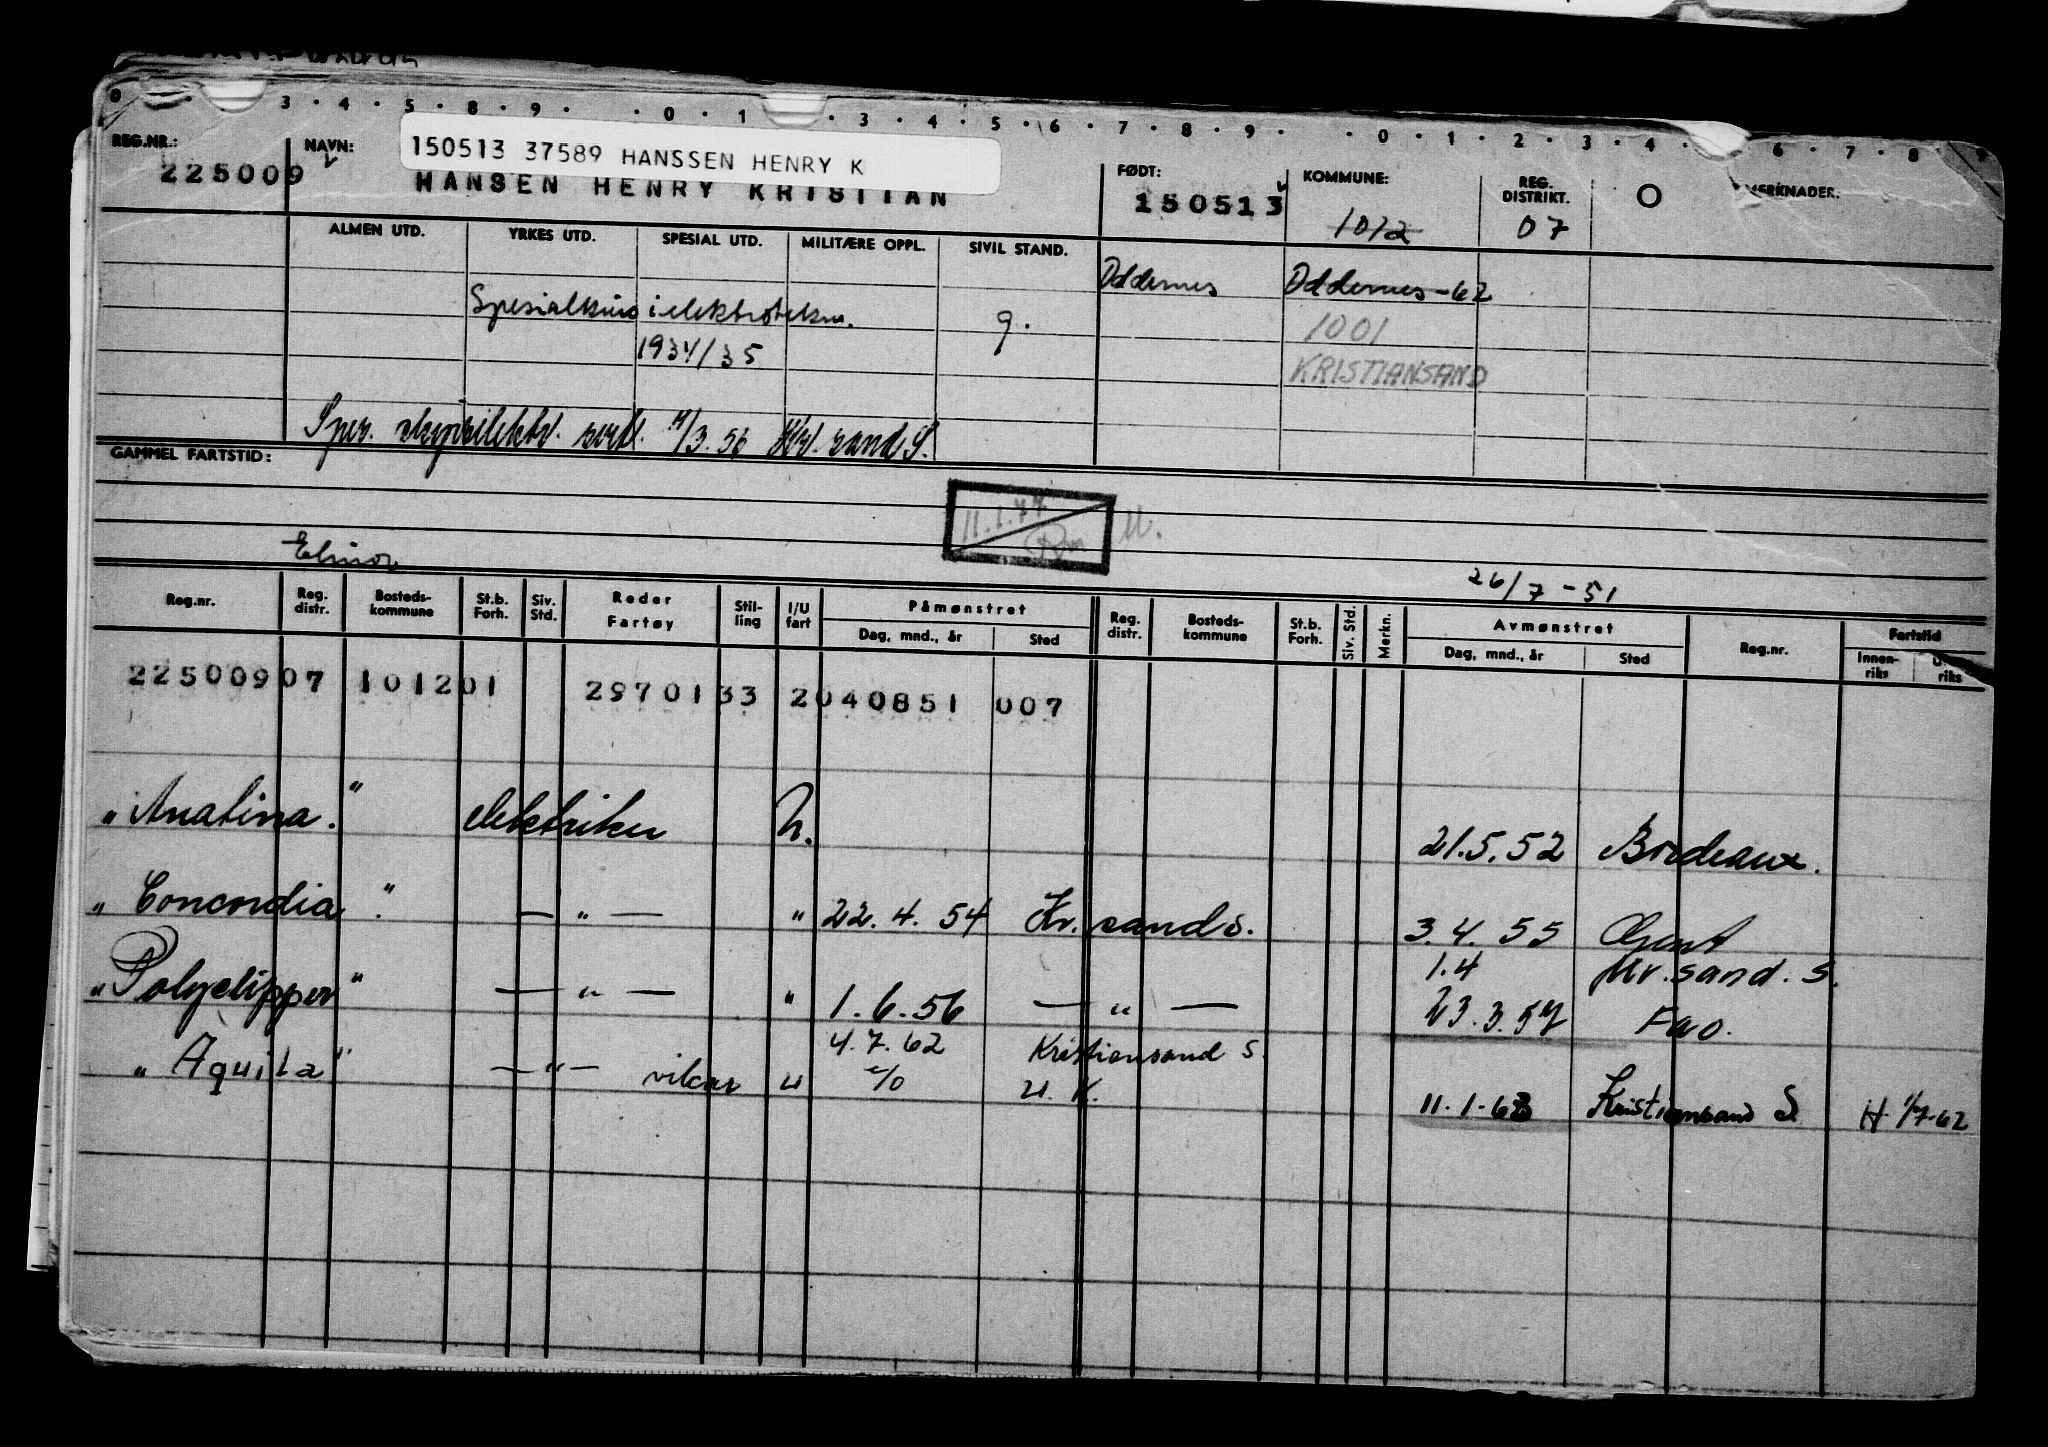 0 3 · 4 · 5 · 8 · 9 · · 0 · 1 · 3 · 4 · 5 · 6 · 7 · 8 · 9 · · 0 · 1 · 2 · 3 · 4 · 6 · 7 · 8 9
REG.NR.: NAVN: 150513 37589 HANSSEN HENRY K FØDT: KOMMUNE: REG. DISTRIKT. O MERKNADER.
225009 HANSEN HENRY KRISTIAN 150513 1012 07
ALMEN UTD. YRKES UTD. SPESIAL UTD. MILITÆRE OPPL. SIVIL STAND.
Oddernes Oddernes-62
Spesialkurs i elektrotekn. g. 1001
1934/35 KRISTIANSAND
Spes. skipselektr. sert. /3.56 Kr.sand S.
GAMMEL FARTSTID:
11.1.77
Elinor 26/7-51
Reg.nr. Reg. distr. Bosteds-kommune St.b. Forh. Siv. Std. Reder Fartøy Stil-ling I/U fart Påmønstret Reg. distr. Bosteds-kommune St.b. Forh. Siv. Std. Merkn. Avmønstret Reg.nr. Fartstid
Dag, mnd., år Sted Dag, mnd., år Sted Innen-riks U. riks
22500907 101201 2970133 2040851 007
"Anatina." elektriker U. 21.5.52 Bordeaux.
"Concordia". — " — " 22.4.54 Kr.sand S. 3.4.55 Gent
1.4 Kr.sand.S.
"Polyclipper" — " — " 1.6.56 — " — 23.3.57 Fao.
4.7.62 Kristiansand S.
"Aquila" — " — vikar u U.K.
11.1.63 Kristiansand S H. 1/7-62